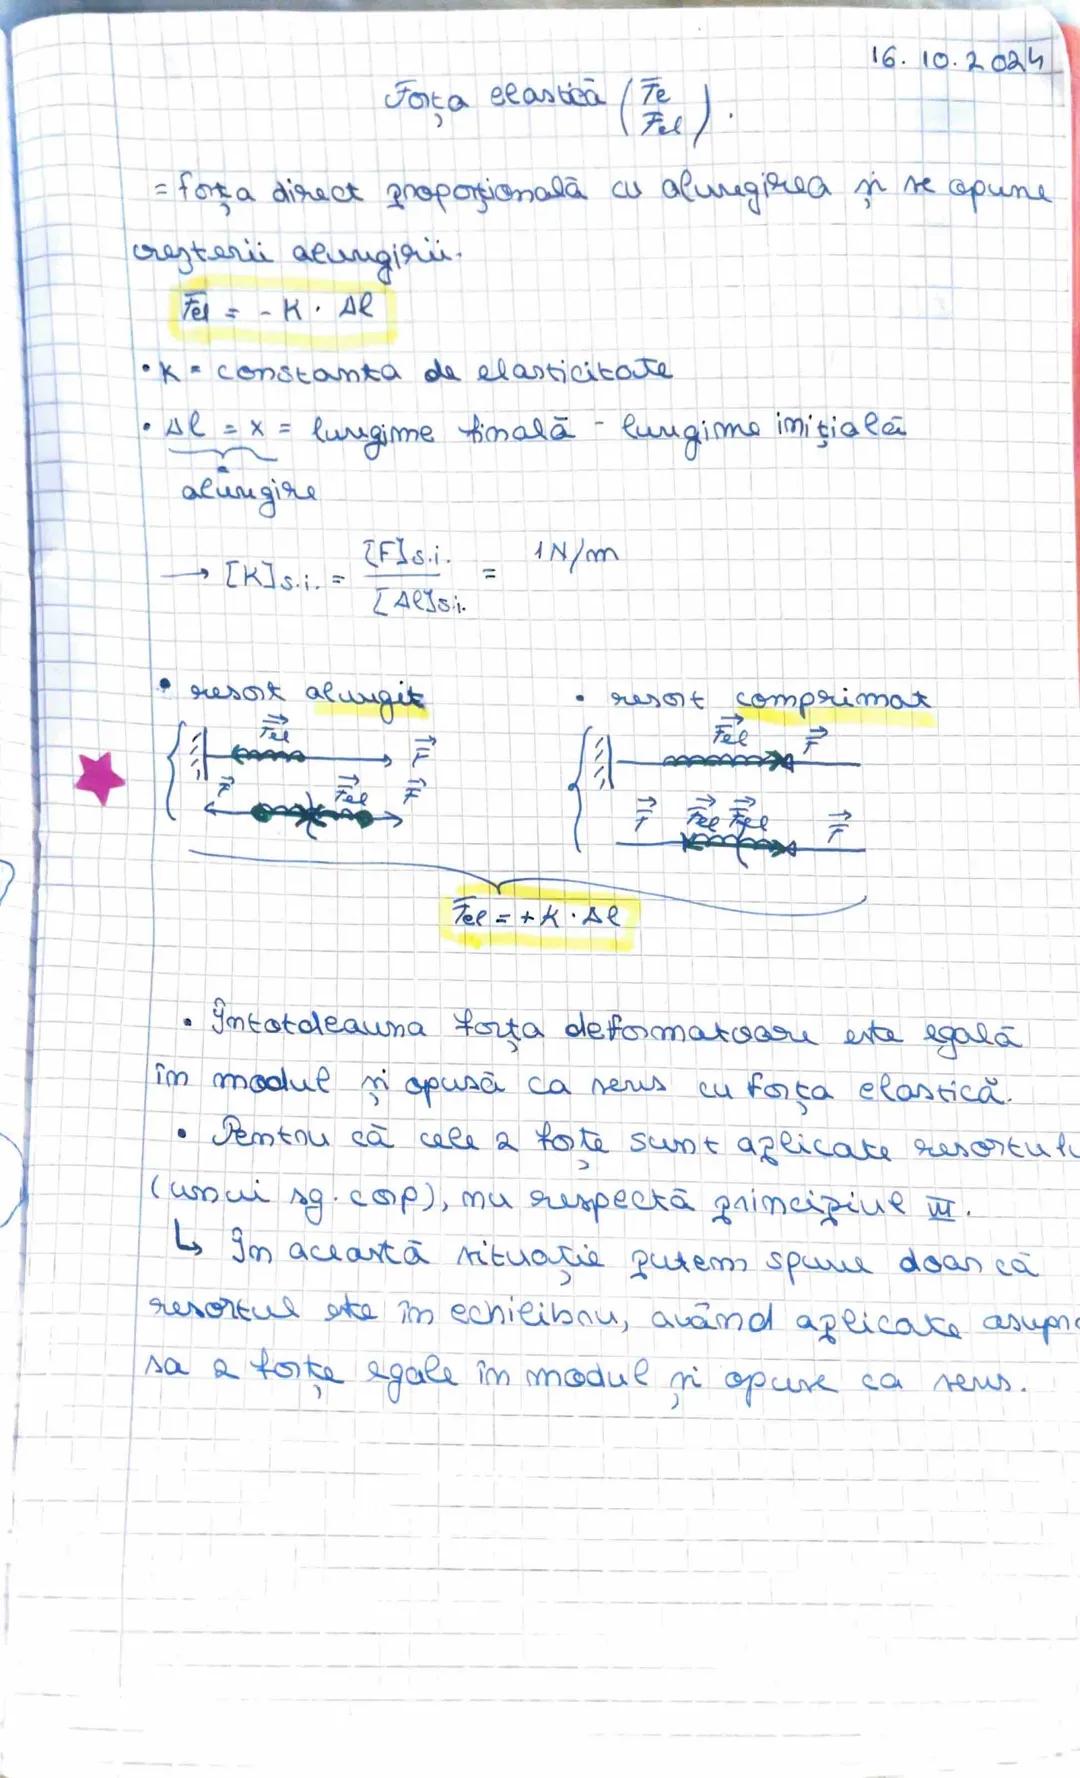 16.10.2024
Forța elastică (F̅e
F̅el).
= forța direct proporțională cu alungirea și se opune
creșterii alungirii.
F̅el = - K · Δl
• K = constanta de elasticitate
• Δl = x = lungime finală - lungime inițială
alungire
→ [K]s.i. = [F]s.i. / [Δl]s.i. = 1N/m
• resort alungit • resort comprimat
F⃗el F⃗ F⃗el F⃗
F⃗ F⃗el F⃗ F⃗ F⃗el F⃗el F⃗
F̅el = + K · Δl
• Întotdeauna forța deformatoare este egală
în modul și opusă ca sens cu forța elastică.
• Pentru că cele 2 forțe sunt aplicate resortulu
(unui sg. corp), nu respectă principiul III.
↳ În această situație putem spune doar că
resortul este în echilibru, având aplicate asupra
sa 2 forțe egale în modul și opuse ca sens.